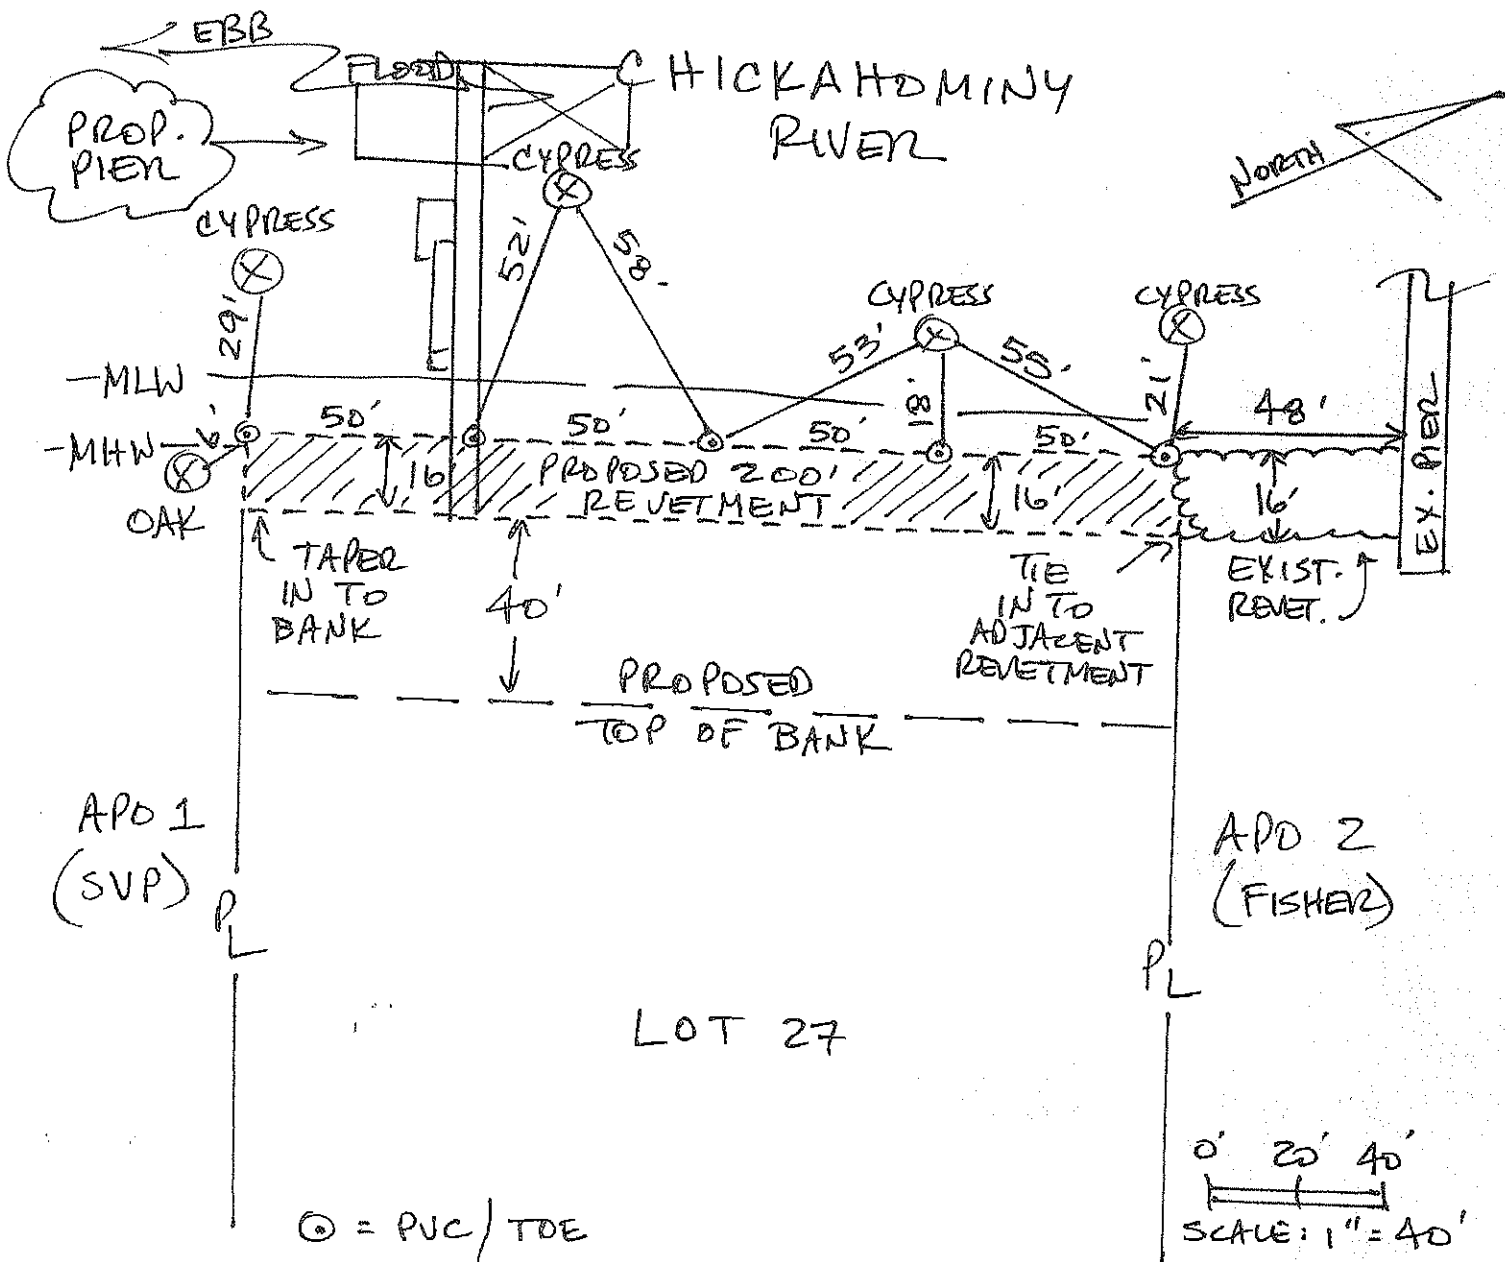 EBB
FLOOD
CHICKAHOMINY
RIVER
PROP.
PIER
NORTH
CYPRESS
CYPRESS
52'
58'
29'
CYPRESS
CYPRESS
53'
55'
18'
21'
48'
-MLW
-MHW
6'
50'
50'
50'
50'
16'
PROPOSED 200'
REVETMENT
16'
16'
EX. PIER
OAK
TAPER
IN TO
BANK
40'
TIE
IN TO
ADJACENT
REVETMENT
EXIST.
REVET.
PROPOSED
TOP OF BANK
APO 1
(SVP)
APO 2
(FISHER)
PL
PL
LOT 27
0' 20' 40'
SCALE: 1" = 40'
= PVC/TOE